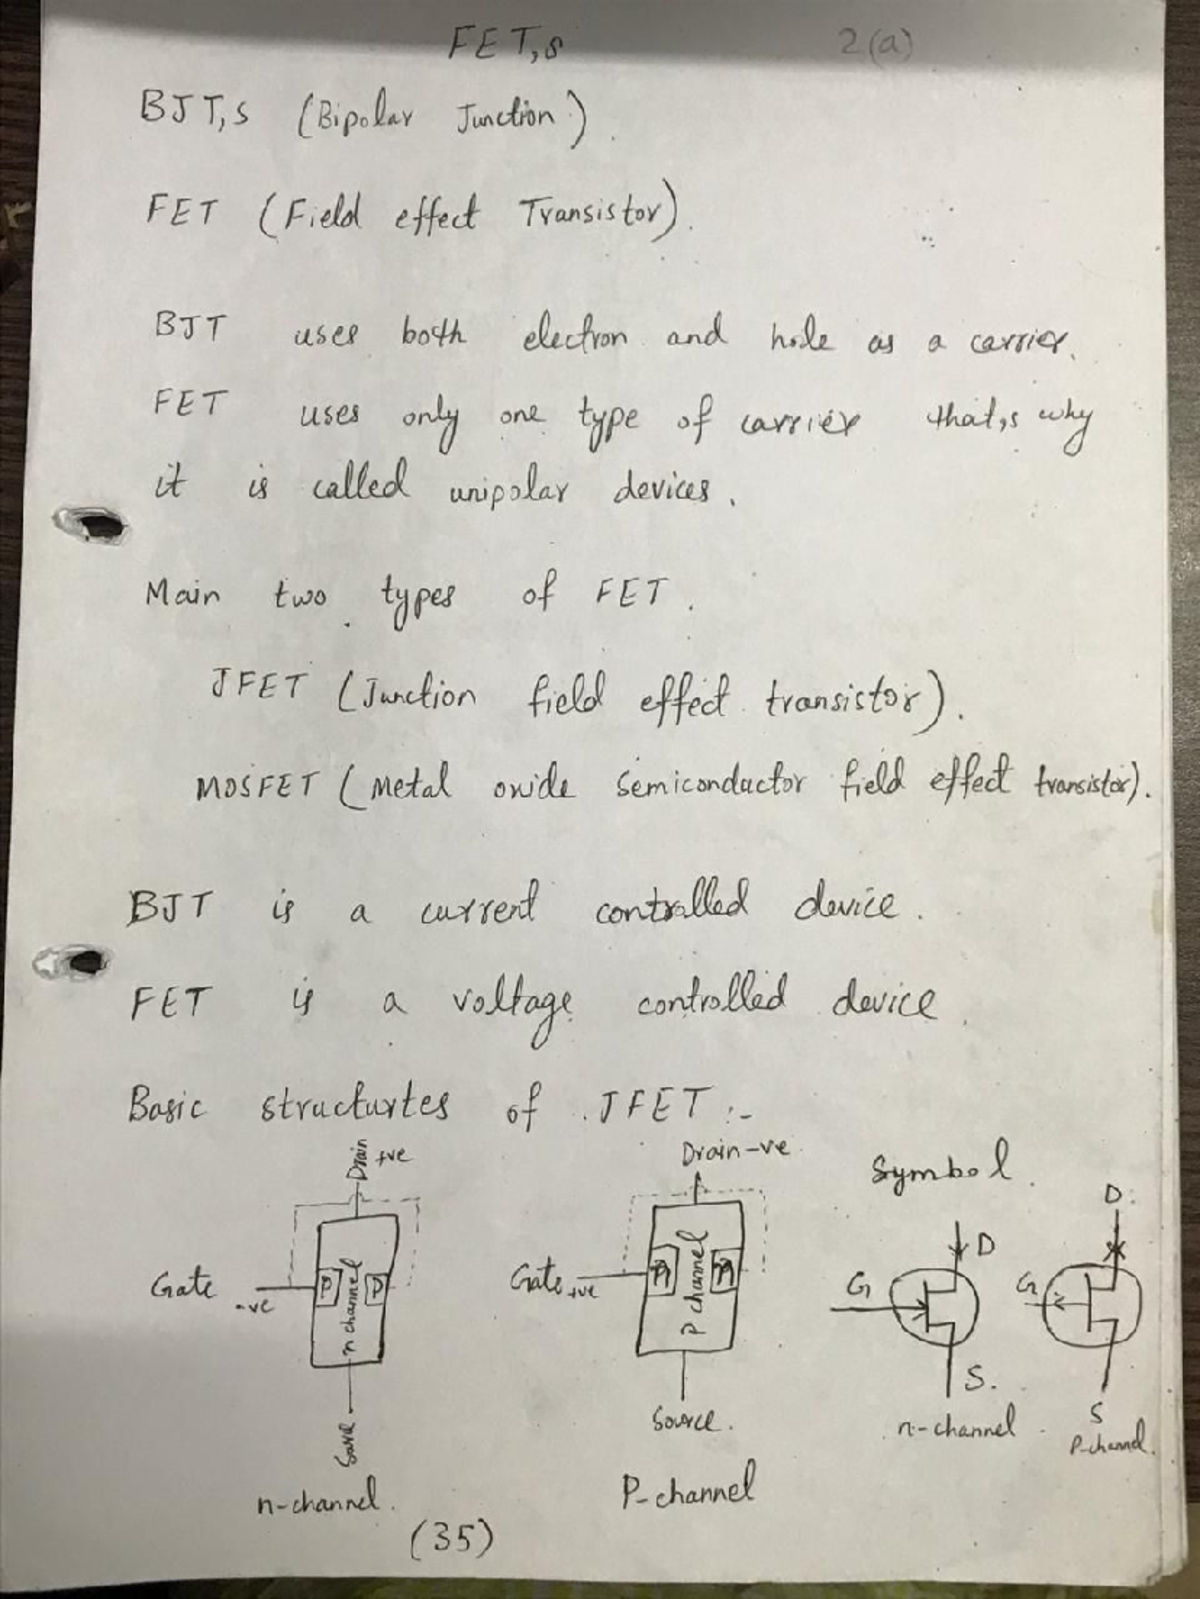 FET,s 2(a)
BJT,s (Bipolar Junction).
FET (Field effect Transistor).
BJT uses both electron and hole as a carrier.
FET uses only one type of carrier that,s why
it is called unipolar devices.
Main two types of FET.
JFET (Junction field effect transistor).
MOSFET (Metal oxide semiconductor field effect transistor).
BJT is a current controlled device.
FET is a voltage controlled device.
Basic structurtes of JFET :-
Drain +ve
Gate -ve
P
n channel
P
n-channel.
Drain -ve
Gate +ve
P channel
Source.
P-channel
Symbol.
D
G
S.
n-channel
D.
G
S
P-channel.
(35)